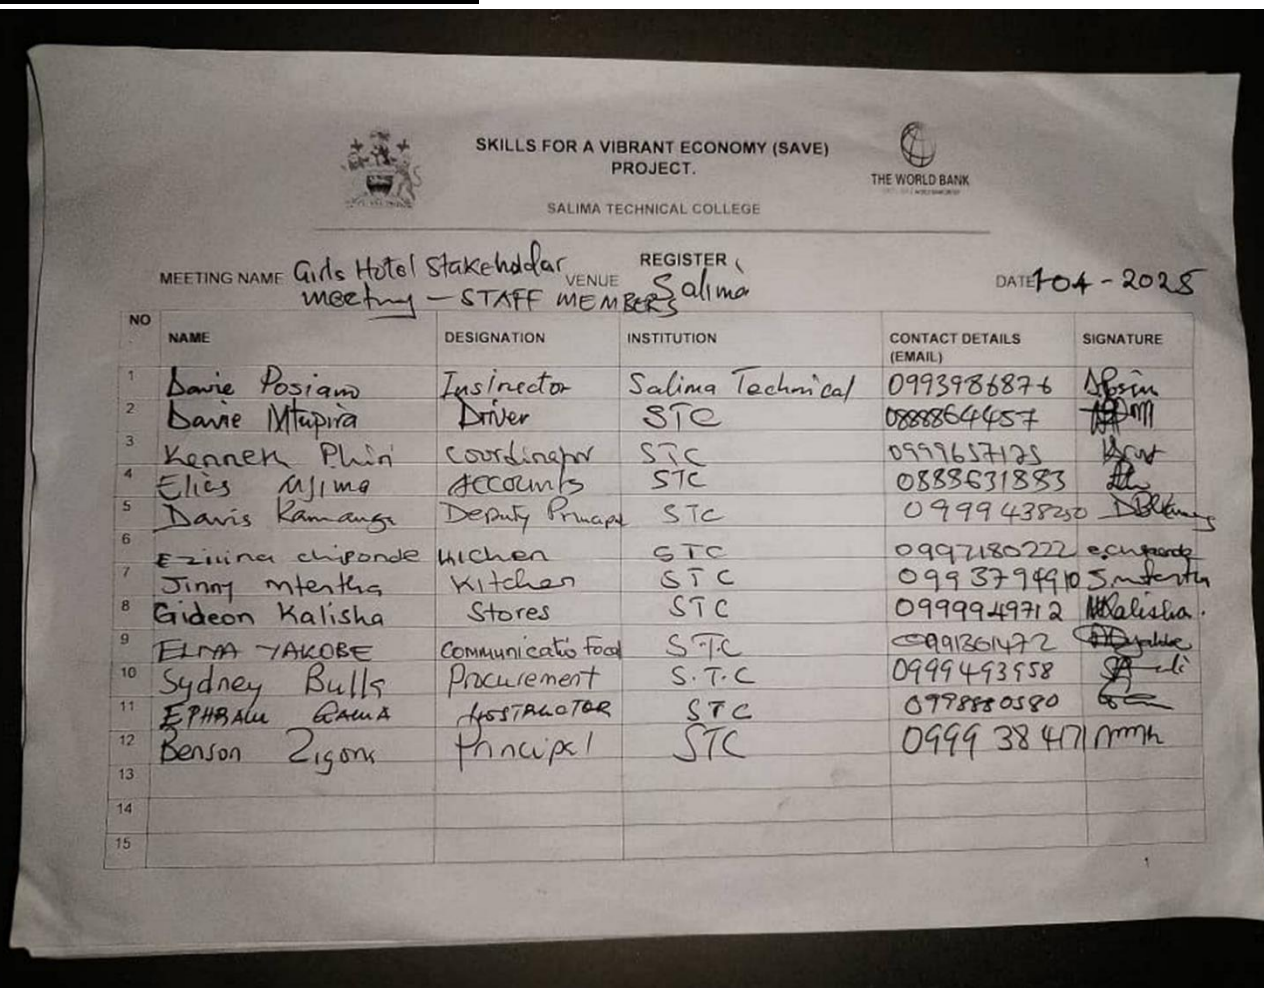 SKILLS FOR A VIBRANT ECONOMY (SAVE)
PROJECT.
THE WORLD BANK
SALIMA TECHNICAL COLLEGE
REGISTER
MEETING NAME Girls Hotel Stakeholdar VENUE Salima DATE 1-04-2025
meeting - STAFF MEMBERS
NO NAME DESIGNATION INSTITUTION CONTACT DETAILS (EMAIL) SIGNATURE
1 Davie Posiano Insirector Salima Technical 0993986876
2 Davie Mtupira Driver STC 0888864457
3 Kenneth Phiri Coordinator STC 0999657125
4 Elias Accounts STC 0888631883
5 Davis Kamanga Deputy Principal STC 0999438250
6 chiponde kitchen STC 0997180222
7 Jinny mtentha Kitchen STC 0993794910
8 Gideon Kalisha Stores STC 0999949712 Kalisha.
9 ELINA YAKOBE Communicatio Focal S.T.C 0991361472
10 Sydney Bulls Procurement S.T.C 0999493958
11 EPHRAIM GAMA STC 0998880580
12 Benson Zigona Principal STC 0999 38 4171
13
14
15
1